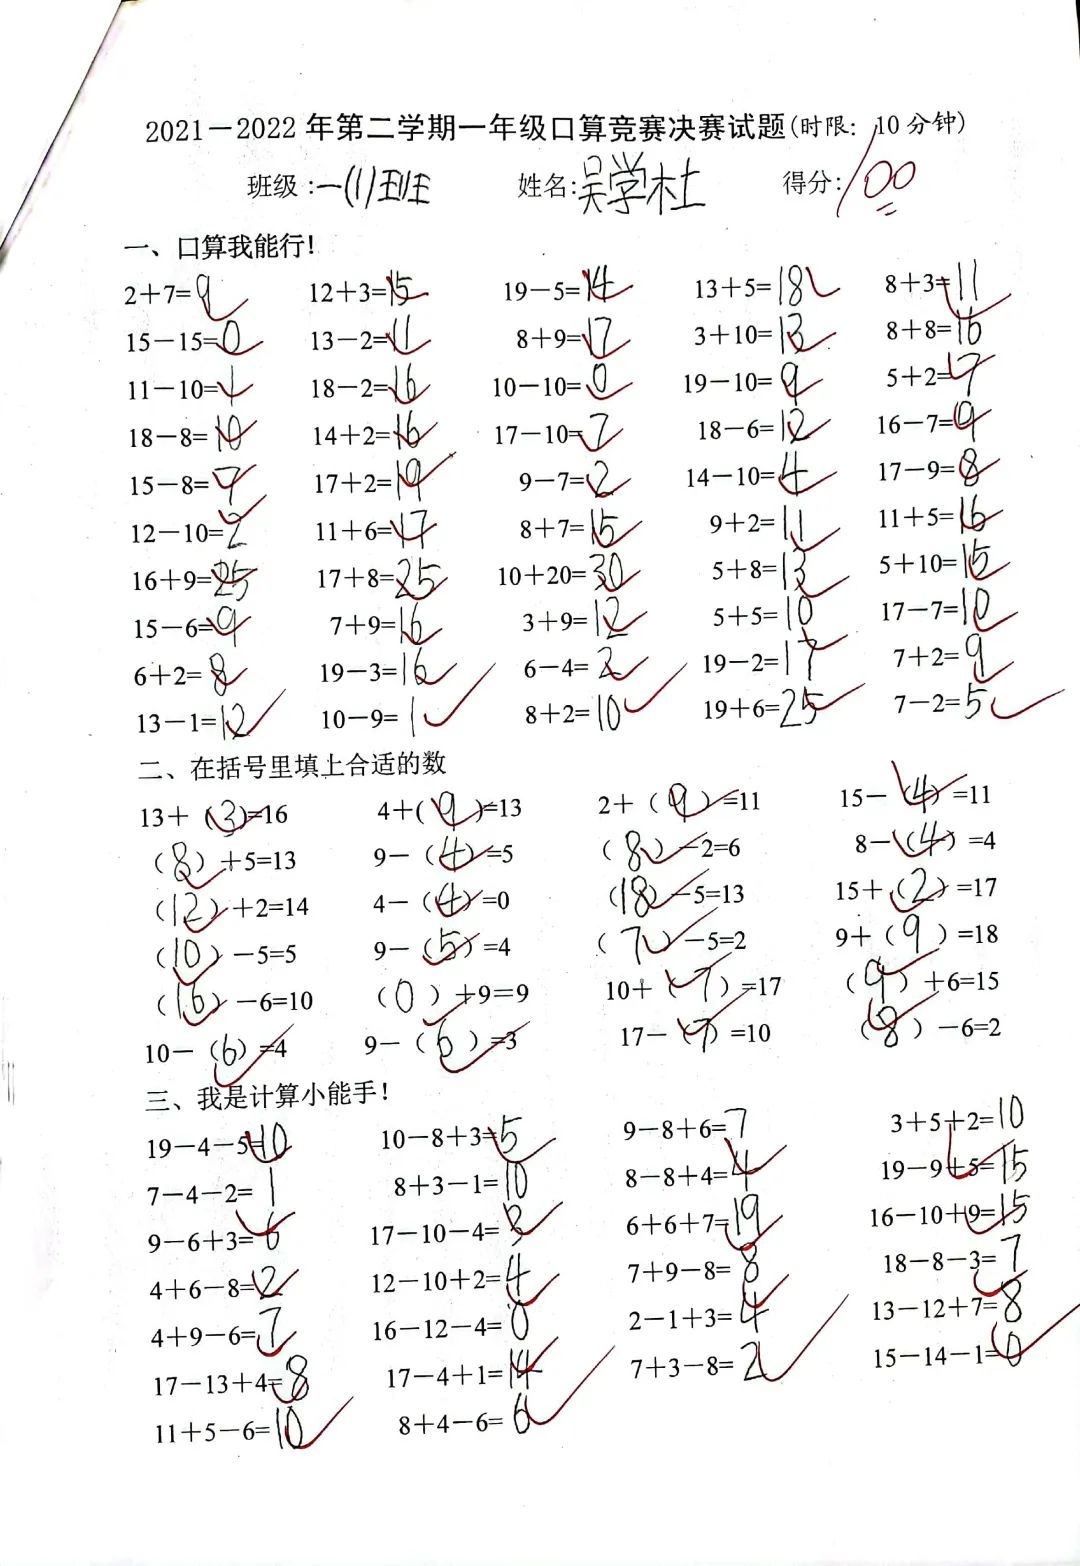 2021－2022年第二学期一年级口算竞赛决赛试题(时限: 10分钟)
班级:一(1)班 姓名:吴学杜 得分:100
一、口算我能行!
2+7=9 12+3=15 19－5=14 13+5=18 8+3=11
15－15=0 13－2=11 8+9=17 3+10=13 8+8=16
11－10=1 18－2=16 10－10=0 19－10=9 5+2=7
18－8=10 14+2=16 17－10=7 18－6=12 16－7=9
15－8=7 17+2=19 9－7=2 14－10=4 17－9=8
12－10=2 11+6=17 8+7=15 9+2=11 11+5=16
16+9=25 17+8=25 10+20=30 5+8=13 5+10=15
15－6=9 7+9=16 3+9=12 5+5=10 17－7=10
6+2=8 19－3=16 6－4=2 19－2=17 7+2=9
13－1=12 10－9=1 8+2=10 19+6=25 7－2=5
二、在括号里填上合适的数
13+(3)=16 4+(9)=13 2+(9)=11 15－(4)=11
(8)+5=13 9－(4)=5 (8)－2=6 8－(4)=4
(12)+2=14 4－(4)=0 (18)－5=13 15+(2)=17
(10)－5=5 9－(5)=4 (7)－5=2 9+(9)=18
(16)－6=10 (0)+9=9 10+(7)=17 (9)+6=15
10－(6)=4 9－(6)=3 17－(7)=10 (8)－6=2
三、我是计算小能手!
19－4－5=10 10－8+3=5 9－8+6=7 3+5+2=10
7－4－2=1 8+3－1=10 8－8+4=4 19－9+5=15
9－6+3=6 17－10－4=3 6+6+7=19 16－10+9=15
4+6－8=2 12－10+2=4 7+9－8=8 18－8－3=7
4+9－6=7 16－12－4=0 2－1+3=4 13－12+7=8
17－13+4=8 17－4+1=14 7+3－8=2 15－14－1=0
11+5－6=10 8+4－6=6